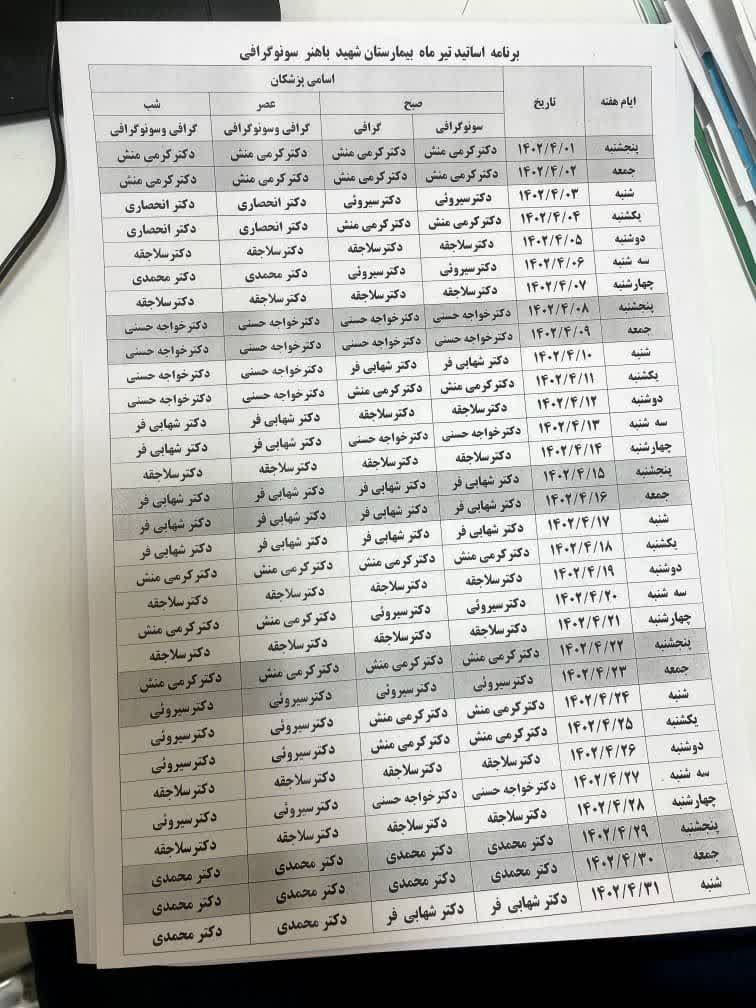 برنامه اساتید تیر ماه بیمارستان شهید باهنر سونوگرافی
ایام هفته تاریخ اسامی پزشکان
صبح عصر شب
سونوگرافی گرافی گرافی وسونوگرافی گرافی وسونوگرافی
پنجشنبه ۱۴۰۲/۴/۰۱ دکترکرمی منش دکترکرمی منش دکترکرمی منش دکترکرمی منش
جمعه ۱۴۰۲/۴/۰۲ دکترکرمی منش دکترکرمی منش دکترکرمی منش دکترکرمی منش
شنبه ۱۴۰۲/۴/۰۳ دکترسیروئی دکترسیروئی دکتر انحصاری دکتر انحصاری
یکشنبه ۱۴۰۲/۴/۰۴ دکترکرمی منش دکترکرمی منش دکتر انحصاری دکتر انحصاری
دوشنبه ۱۴۰۲/۴/۰۵ دکترسلاجقه دکترسلاجقه دکترسلاجقه دکترسلاجقه
سه شنبه ۱۴۰۲/۴/۰۶ دکترسیروئی دکترسیروئی دکتر محمدی دکتر محمدی
چهارشنبه ۱۴۰۲/۴/۰۷ دکترسلاجقه دکترسلاجقه دکترسلاجقه دکترسلاجقه
پنجشنبه ۱۴۰۲/۴/۰۸ دکترخواجه حسنی دکترخواجه حسنی دکترخواجه حسنی دکترخواجه حسنی
جمعه ۱۴۰۲/۴/۰۹ دکترخواجه حسنی دکترخواجه حسنی دکترخواجه حسنی دکترخواجه حسنی
شنبه ۱۴۰۲/۴/۱۰ دکتر شهابی فر دکتر شهابی فر دکترخواجه حسنی دکترخواجه حسنی
یکشنبه ۱۴۰۲/۴/۱۱ دکترکرمی منش دکترکرمی منش دکترخواجه حسنی دکترخواجه حسنی
دوشنبه ۱۴۰۲/۴/۱۲ دکترسلاجقه دکترسلاجقه دکتر شهابی فر دکتر شهابی فر
سه شنبه ۱۴۰۲/۴/۱۳ دکترخواجه حسنی دکترخواجه حسنی دکتر شهابی فر دکتر شهابی فر
چهارشنبه ۱۴۰۲/۴/۱۴ دکترسلاجقه دکترسلاجقه دکترسلاجقه دکترسلاجقه
پنجشنبه ۱۴۰۲/۴/۱۵ دکتر شهابی فر دکتر شهابی فر دکتر شهابی فر دکتر شهابی فر
جمعه ۱۴۰۲/۴/۱۶ دکتر شهابی فر دکتر شهابی فر دکتر شهابی فر دکتر شهابی فر
شنبه ۱۴۰۲/۴/۱۷ دکتر شهابی فر دکتر شهابی فر دکتر شهابی فر دکتر شهابی فر
یکشنبه ۱۴۰۲/۴/۱۸ دکترکرمی منش دکترکرمی منش دکترکرمی منش دکترکرمی منش
دوشنبه ۱۴۰۲/۴/۱۹ دکترسلاجقه دکترسلاجقه دکترسلاجقه دکترسلاجقه
سه شنبه ۱۴۰۲/۴/۲۰ دکترسیروئی دکترسیروئی دکترکرمی منش دکترکرمی منش
چهارشنبه ۱۴۰۲/۴/۲۱ دکترسلاجقه دکترسلاجقه دکترسلاجقه دکترسلاجقه
پنجشنبه ۱۴۰۲/۴/۲۲ دکترکرمی منش دکترکرمی منش دکترکرمی منش دکترکرمی منش
جمعه ۱۴۰۲/۴/۲۳ دکترسیروئی دکترسیروئی دکترسیروئی دکترسیروئی
شنبه ۱۴۰۲/۴/۲۴ دکترکرمی منش دکترکرمی منش دکترسیروئی دکترسیروئی
یکشنبه ۱۴۰۲/۴/۲۵ دکترکرمی منش دکترکرمی منش دکترسیروئی دکترسیروئی
دوشنبه ۱۴۰۲/۴/۲۶ دکترسلاجقه دکترسلاجقه دکترسلاجقه دکترسلاجقه
سه شنبه ۱۴۰۲/۴/۲۷ دکترخواجه حسنی دکترخواجه حسنی دکترسیروئی دکترسیروئی
چهارشنبه ۱۴۰۲/۴/۲۸ دکترسلاجقه دکترسلاجقه دکترسلاجقه دکترسلاجقه
پنجشنبه ۱۴۰۲/۴/۲۹ دکتر محمدی دکتر محمدی دکتر محمدی دکتر محمدی
جمعه ۱۴۰۲/۴/۳۰ دکتر محمدی دکتر محمدی دکتر محمدی دکتر محمدی
شنبه ۱۴۰۲/۴/۳۱ دکتر شهابی فر دکتر شهابی فر دکتر محمدی دکتر محمدی